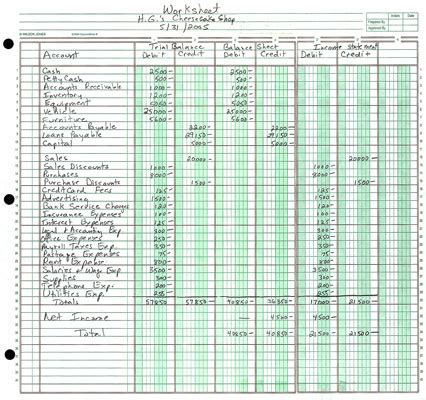 Worksheet
H.G.'s Cheesecake Shop
5/31/2005
WILSON JONES
Initials Date
Prepared By
Approved By
Trial Balance Balance Sheet Income Statement
Account Debit Credit Debit Credit Debit Credit
Cash 2500- 2500-
Petty Cash 500- 500-
Accounts Receivable 1000- 1000-
Inventory 1200- 1200-
Equipment 5050- 5050-
Vehicle 25000- 25000-
Furniture 5600- 5600-
Accounts Payable 2200- 2200-
Loans Payable 29150- 29150-
Capital 5000- 5000-
Sales 20000- 20000-
Sales Discounts 1000- 1000-
Purchases 8000-
Purchase Discounts 1500- 1500-
Credit Card Fees 125- 125-
Advertising 1500- 1500-
Bank Service Charges 120- 120-
Insurance Expenses 100- 100-
Interest Expenses 125- 125-
Legal & Accounting Exp 300- 300-
Office Expenses 250- 250-
Payroll Taxes Exp. 350- 350-
Postage Expenses 75- 75-
Rent Expense 800- 800-
Salaries & Wage Exp 3500- 3500-
Supplies 300- 300-
Telephone Exp. 200- 200-
Utilities Exp. 255- 255-
Totals 57850 57850- 40850- 36350- 17000 21500-
Net Income — 4500- 4500-
Total 40850- 40850- 21500- 21500-